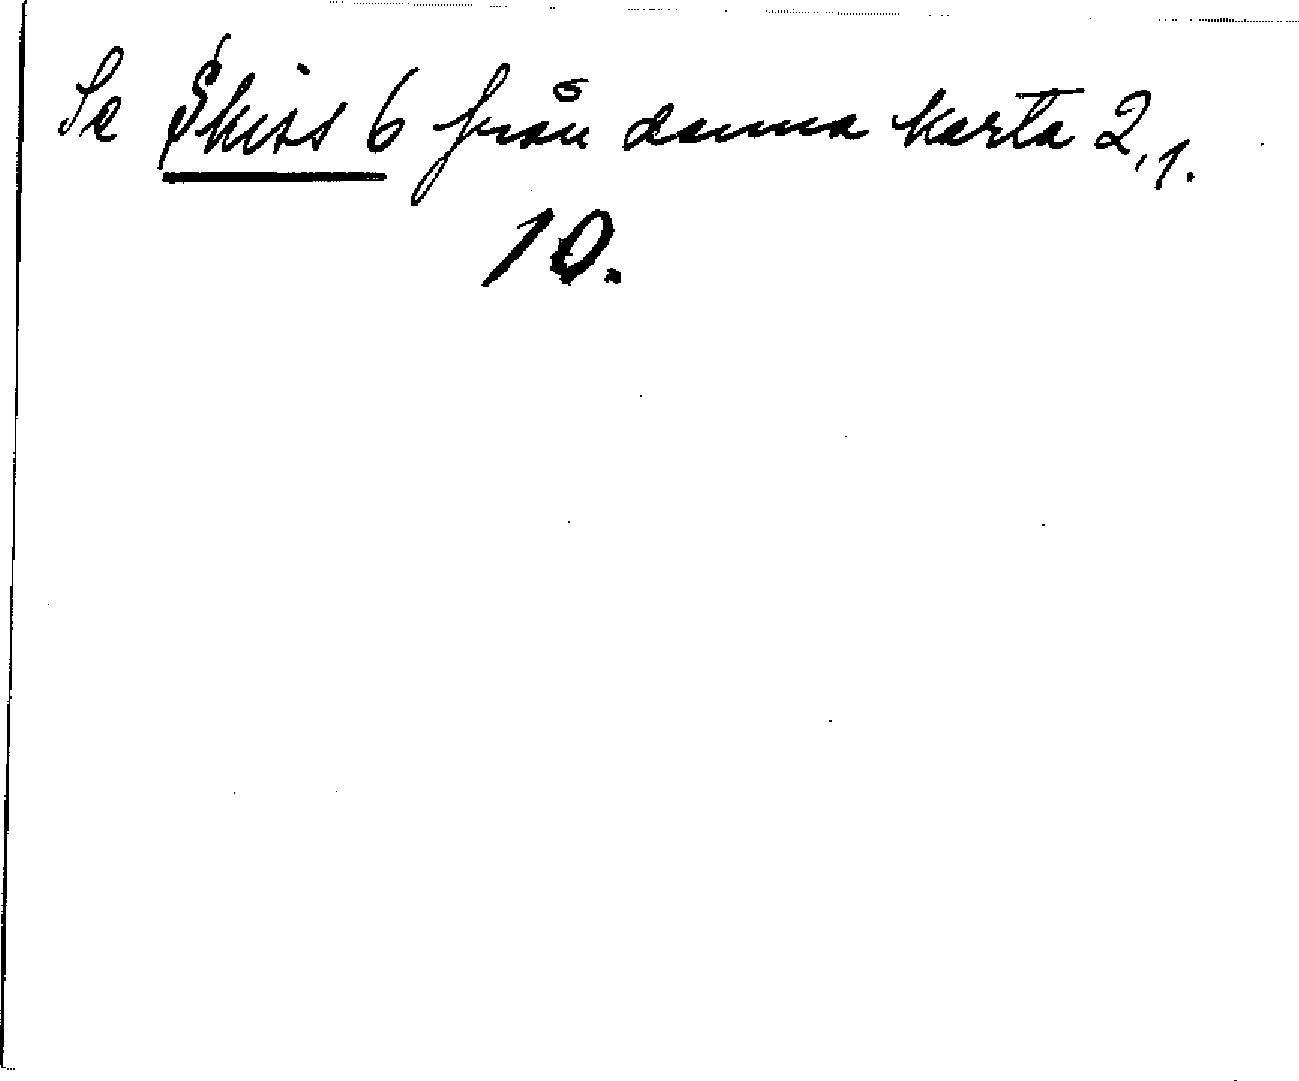 Se Skiss 6 från denna karta 2,1.
10.